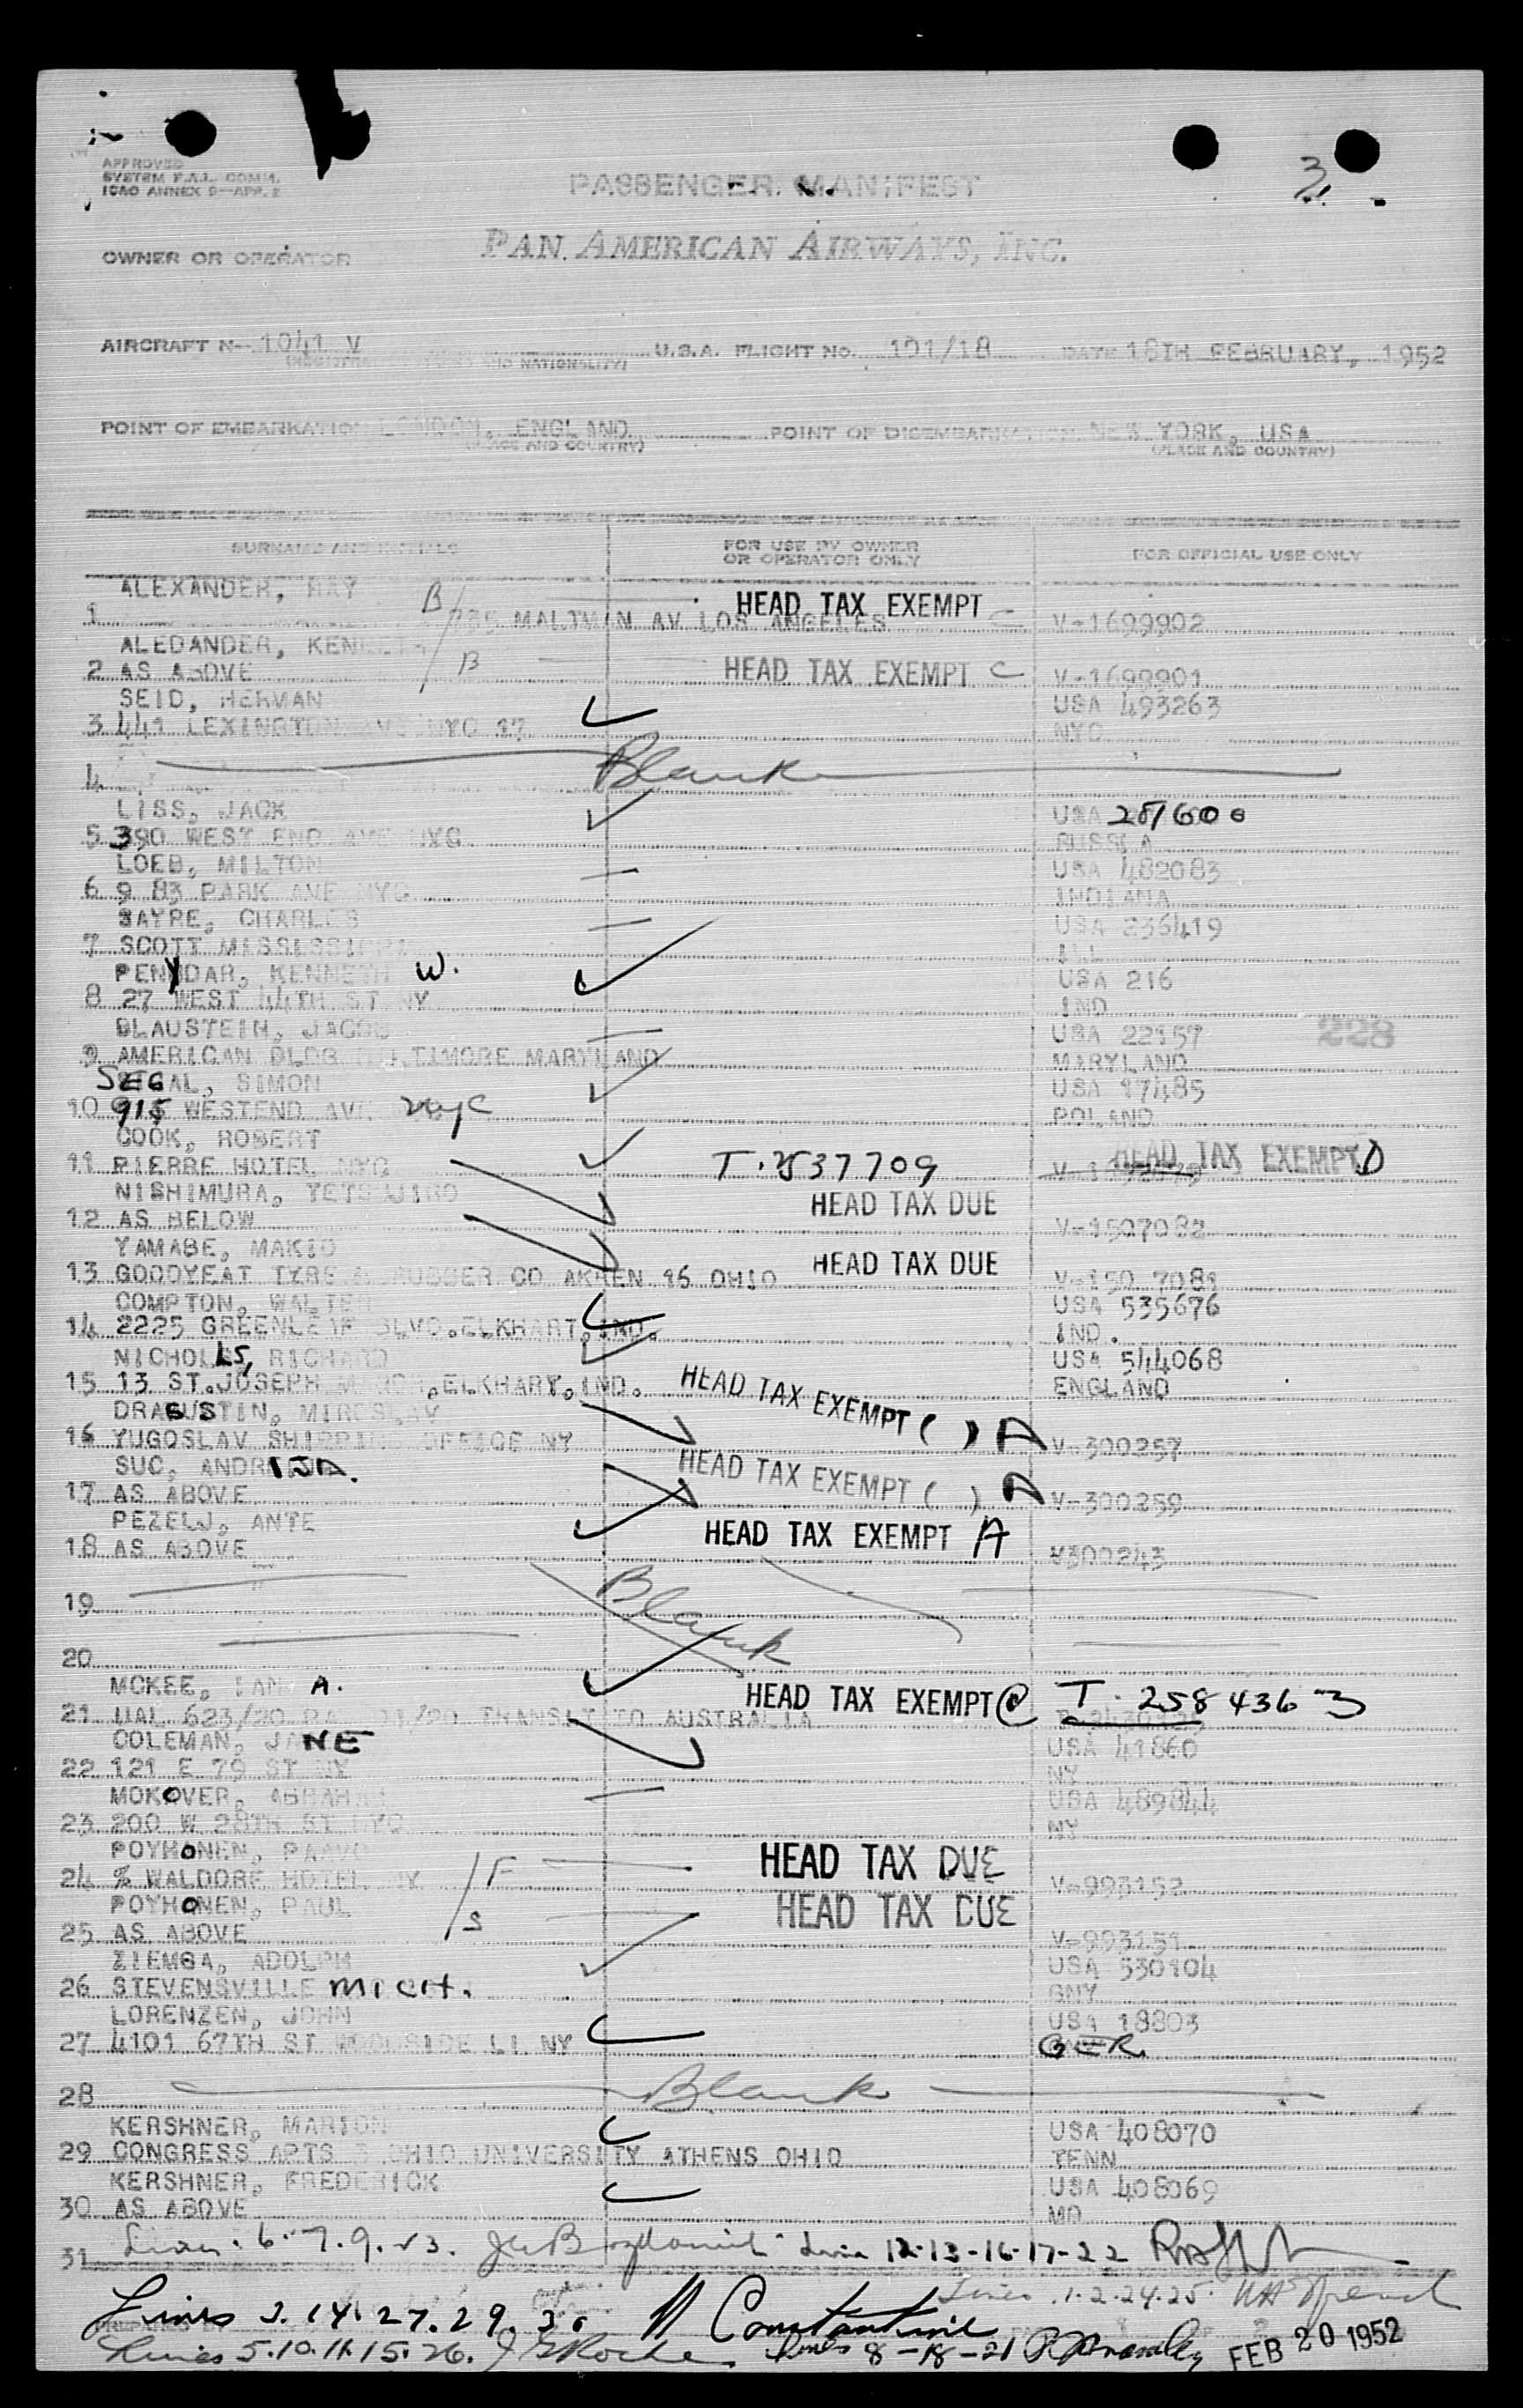 APPROVED
SYSTEM F.A.L. COMM.
ICAO ANNEX 9—APP. 2
PASSENGER MANIFEST
3
OWNER OR OPERATOR
PAN AMERICAN AIRWAYS, INC.
AIRCRAFT N-- 1041 V U.S.A. FLIGHT NO. 101/18 DATE 18TH FEBRUARY, 1952
AND NATIONALITY)
POINT OF EMBARKATION LONDON, ENGLAND POINT OF NEW YORK, USA
(PLACE AND COUNTRY) (PLACE AND COUNTRY)
SURNAME AND INITIALS FOR USE BY OWNER OR OPERATOR ONLY FOR OFFICIAL USE ONLY
ALEXANDER, MAY B HEAD TAX EXEMPT
1 MALTMAN AV LOS ANGELES C V-1699902
ALEDANDER, KENNETH B
2 AS ABOVE HEAD TAX EXEMPT C V-1699901
SEID, HERMAN USA 493263
3 441 LEXINGTON AVE NYC 17 NYC
4 Blank
LISS, JACK USA
5 390 WEST END AVE NYC RUSSIA
LOEB, MILTON USA 482083
6 9 83 PARK AVE NYC INDIANA
SAYRE, CHARLES USA 236419
7 SCOTT MISSISSIPPI ILL
PENYDAR, KENNETH W. USA 216
8 27 WEST 44TH ST NY IND
BLAUSTEIN, JACOB USA 22157
228
9 AMERICAN BLDG BALTIMORE MARYLAND MARYLAND
SEGAL, SIMON USA 17485
10 915 WESTEND AVE NYC POLAND
COOK, ROBERT HEAD TAX EXEMPT D
11 PIERRE HOTEL NYC T.2537709
NISHIMURA, HEAD TAX DUE
12 AS BELOW V-1507082
YAMABE, MAKIO
13 GOODYEAT TYRE & RUBBER CO AKREN 16 OHIO HEAD TAX DUE V-150 7081
COMPTON, WALTER USA 535676
14 2225 GREENLEAF BLVD.ELKHART,IND. IND.
NICHOLLS, RICHARD USA 544068
15 13 ST.JOSEPH ELKHART, IND. HEAD TAX EXEMPT ( ) A ENGLAND
DRAGUSTIN, MIROSLAV
16 YUGOSLAV SHIPPING OFFICE NY V-300257
SUC, ANDRIJA. HEAD TAX EXEMPT ( ) A
17 AS ABOVE V-300259
PEZELJ, ANTE HEAD TAX EXEMPT A
18 AS ABOVE V300243
19 Blank
20
MCKEE, IAN A. HEAD TAX EXEMPT T. 2584363
21 UAL 623/20 TRANSIT TO AUSTRALIA
COLEMAN, JANE USA 41860
22 121 E 79 ST NY NY
MOKOVER, ABRAHAM USA 489844
23 200 W 28TH ST NYC NY
POYHONEN, PAAVO HEAD TAX DUE
24 % WALDORF HOTEL NY F V-993152
POYHONEN, PAUL HEAD TAX DUE
25 AS ABOVE S V-993151
ZIEMBA, ADOLPH USA 530104
26 STEVENSVILLE MICH. GNY
LORENZEN, JOHN USA 18803
27 4101 67TH ST WOODSIDE LI NY GER
28 Blank
KERSHNER, MARION USA 408070
29 CONGRESS APTS OHIO UNIVERSITY ATHENS OHIO TENN
KERSHNER, FREDERICK USA 408069
30 AS ABOVE MD
31 Lines 6.7.9.23. Line 12-13-16-17-22
Lines 1.2.24.25.
Lines 3.14.27.29.30 Constantine
Lines 5.10.11.15.26. Lines 8-18-21
FEB 20 1952